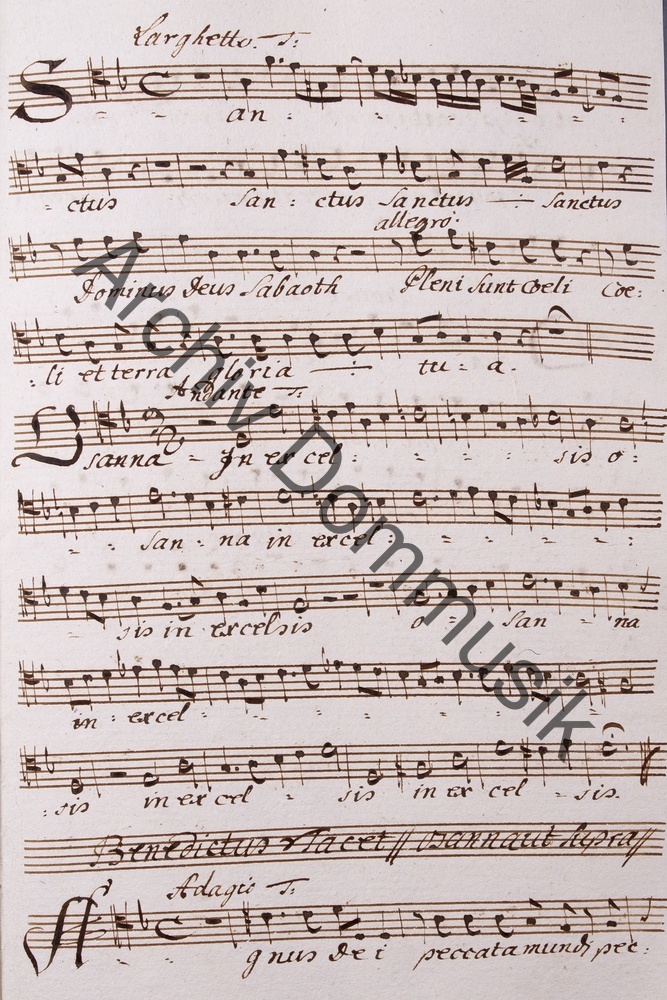 Larghetto. T:
San - - - : : : :
: ctus San : ctus Sanctus Sanctus
allegro:
Dominus Deus Sabaoth Pleni Sunt Coeli Coe:
: li et terra gloria : tu : a.
Andante T:
Osanna - In ex cel : : : : sis o :
: : san : na in excel : : : : :
: : sis in excelsis o : San : na
in : excel : : : : : :
: sis in ex cel : sis in ex cel : sis.
Benedictus Tacet // osanna ut supra //
Adagio T:
Agnus De i peccata mundi pec :
Archiv Dommusik